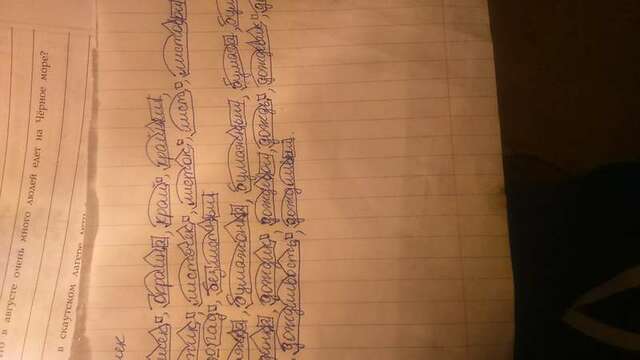 что в августе очень много людей едет на Чёрное море?
в скаутском лагере дети
окраина, край, крайний
листочек, листок, лист, листовой
безлистный
бумажонка, бумажный, бумага,
дождик, дождевой, дождь, дождевик,
дождливость, дождливый.